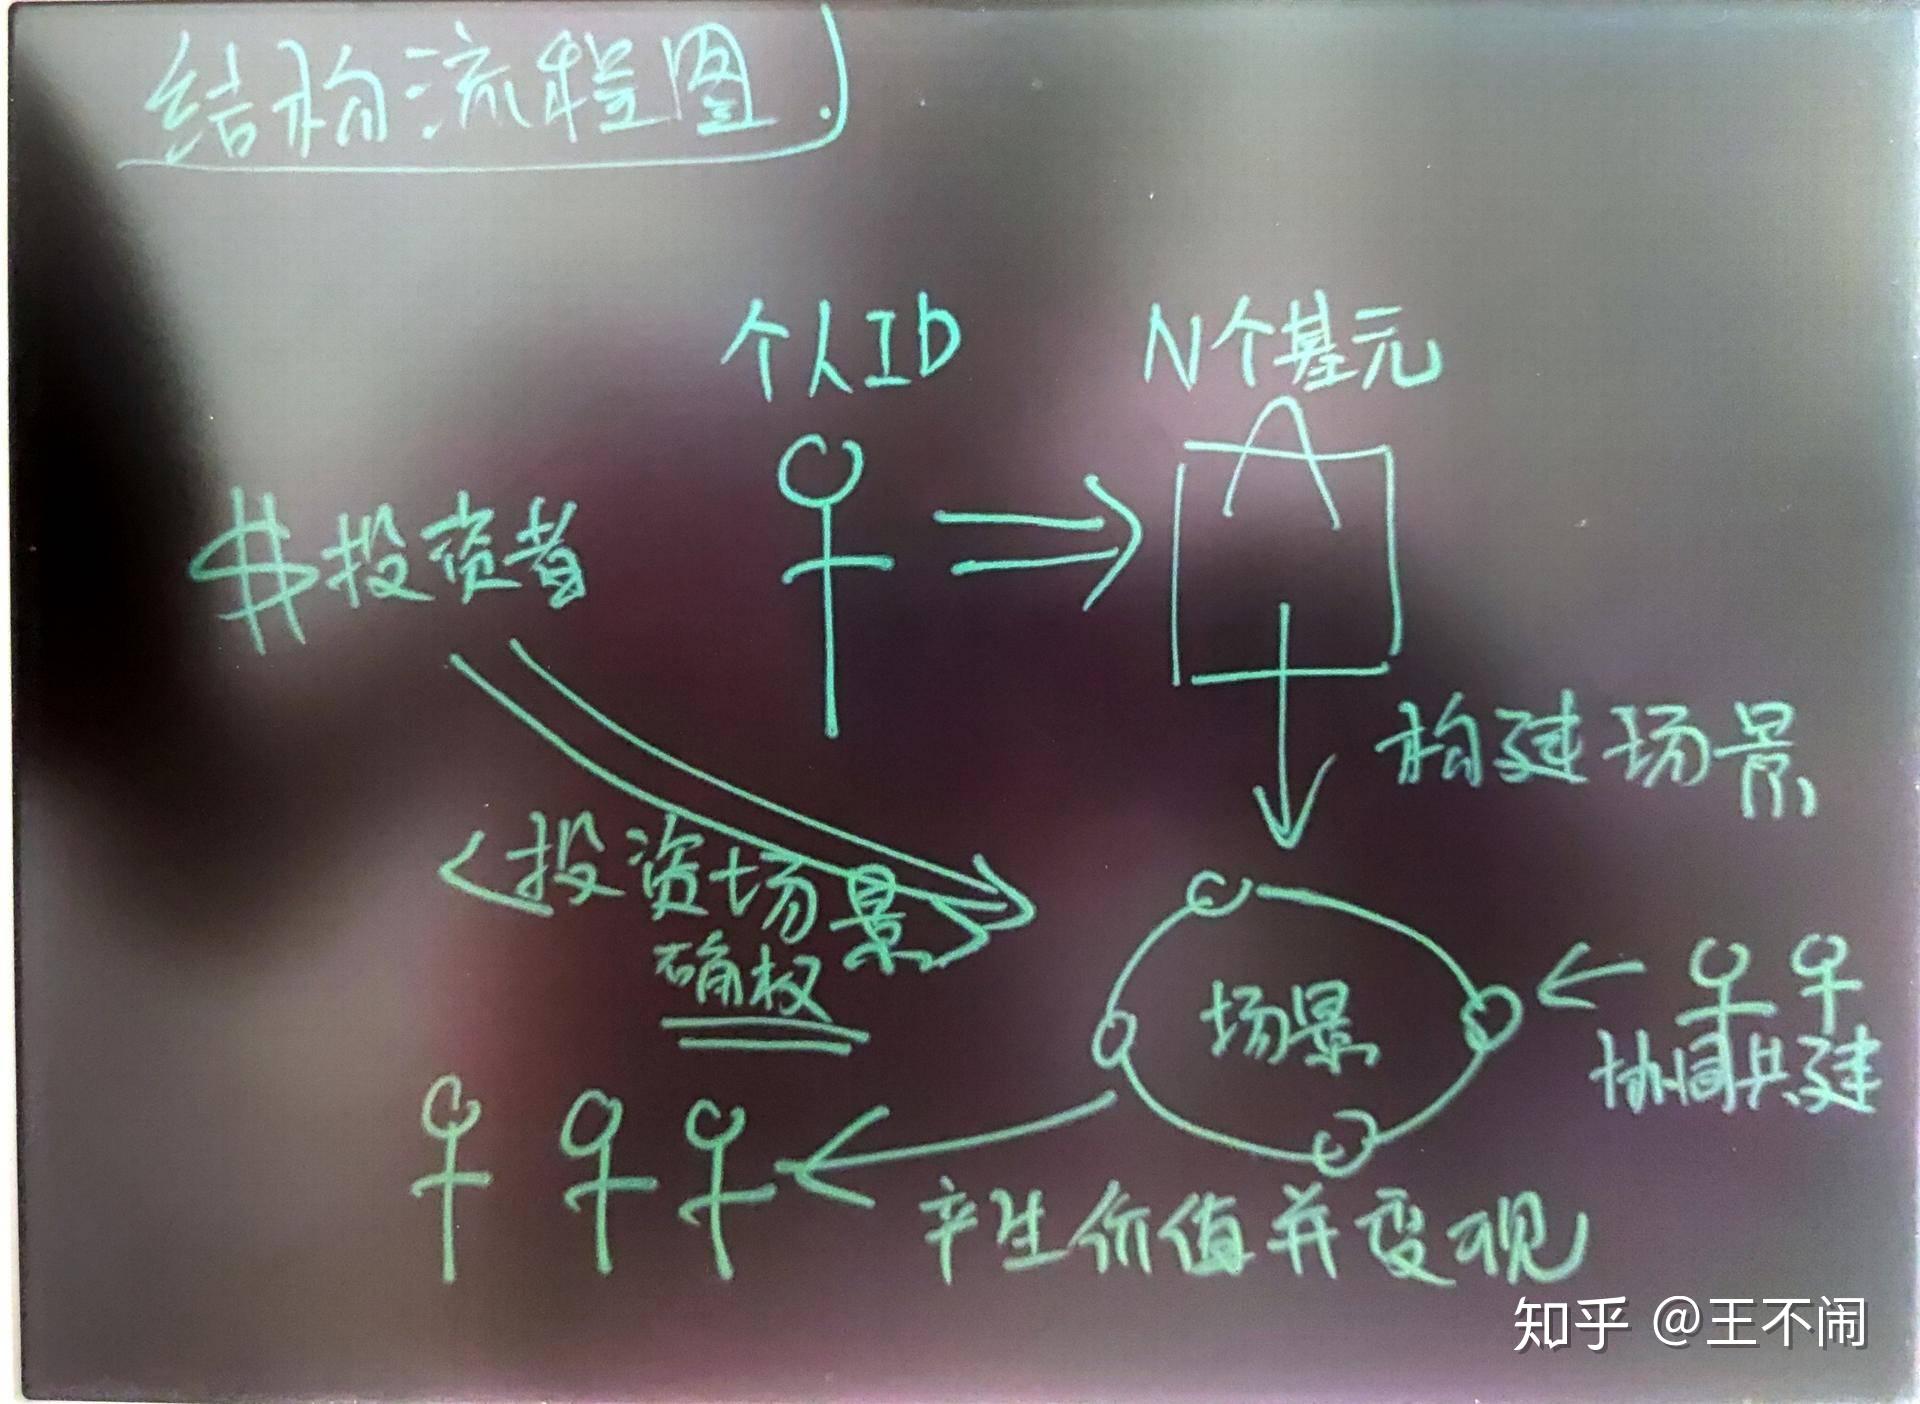 结构流程图.
个人ID
N个基元
$投资者
构建场景
<投资场景>
确权
场景
协同共建
产生价值并变现
知乎 @王不闹